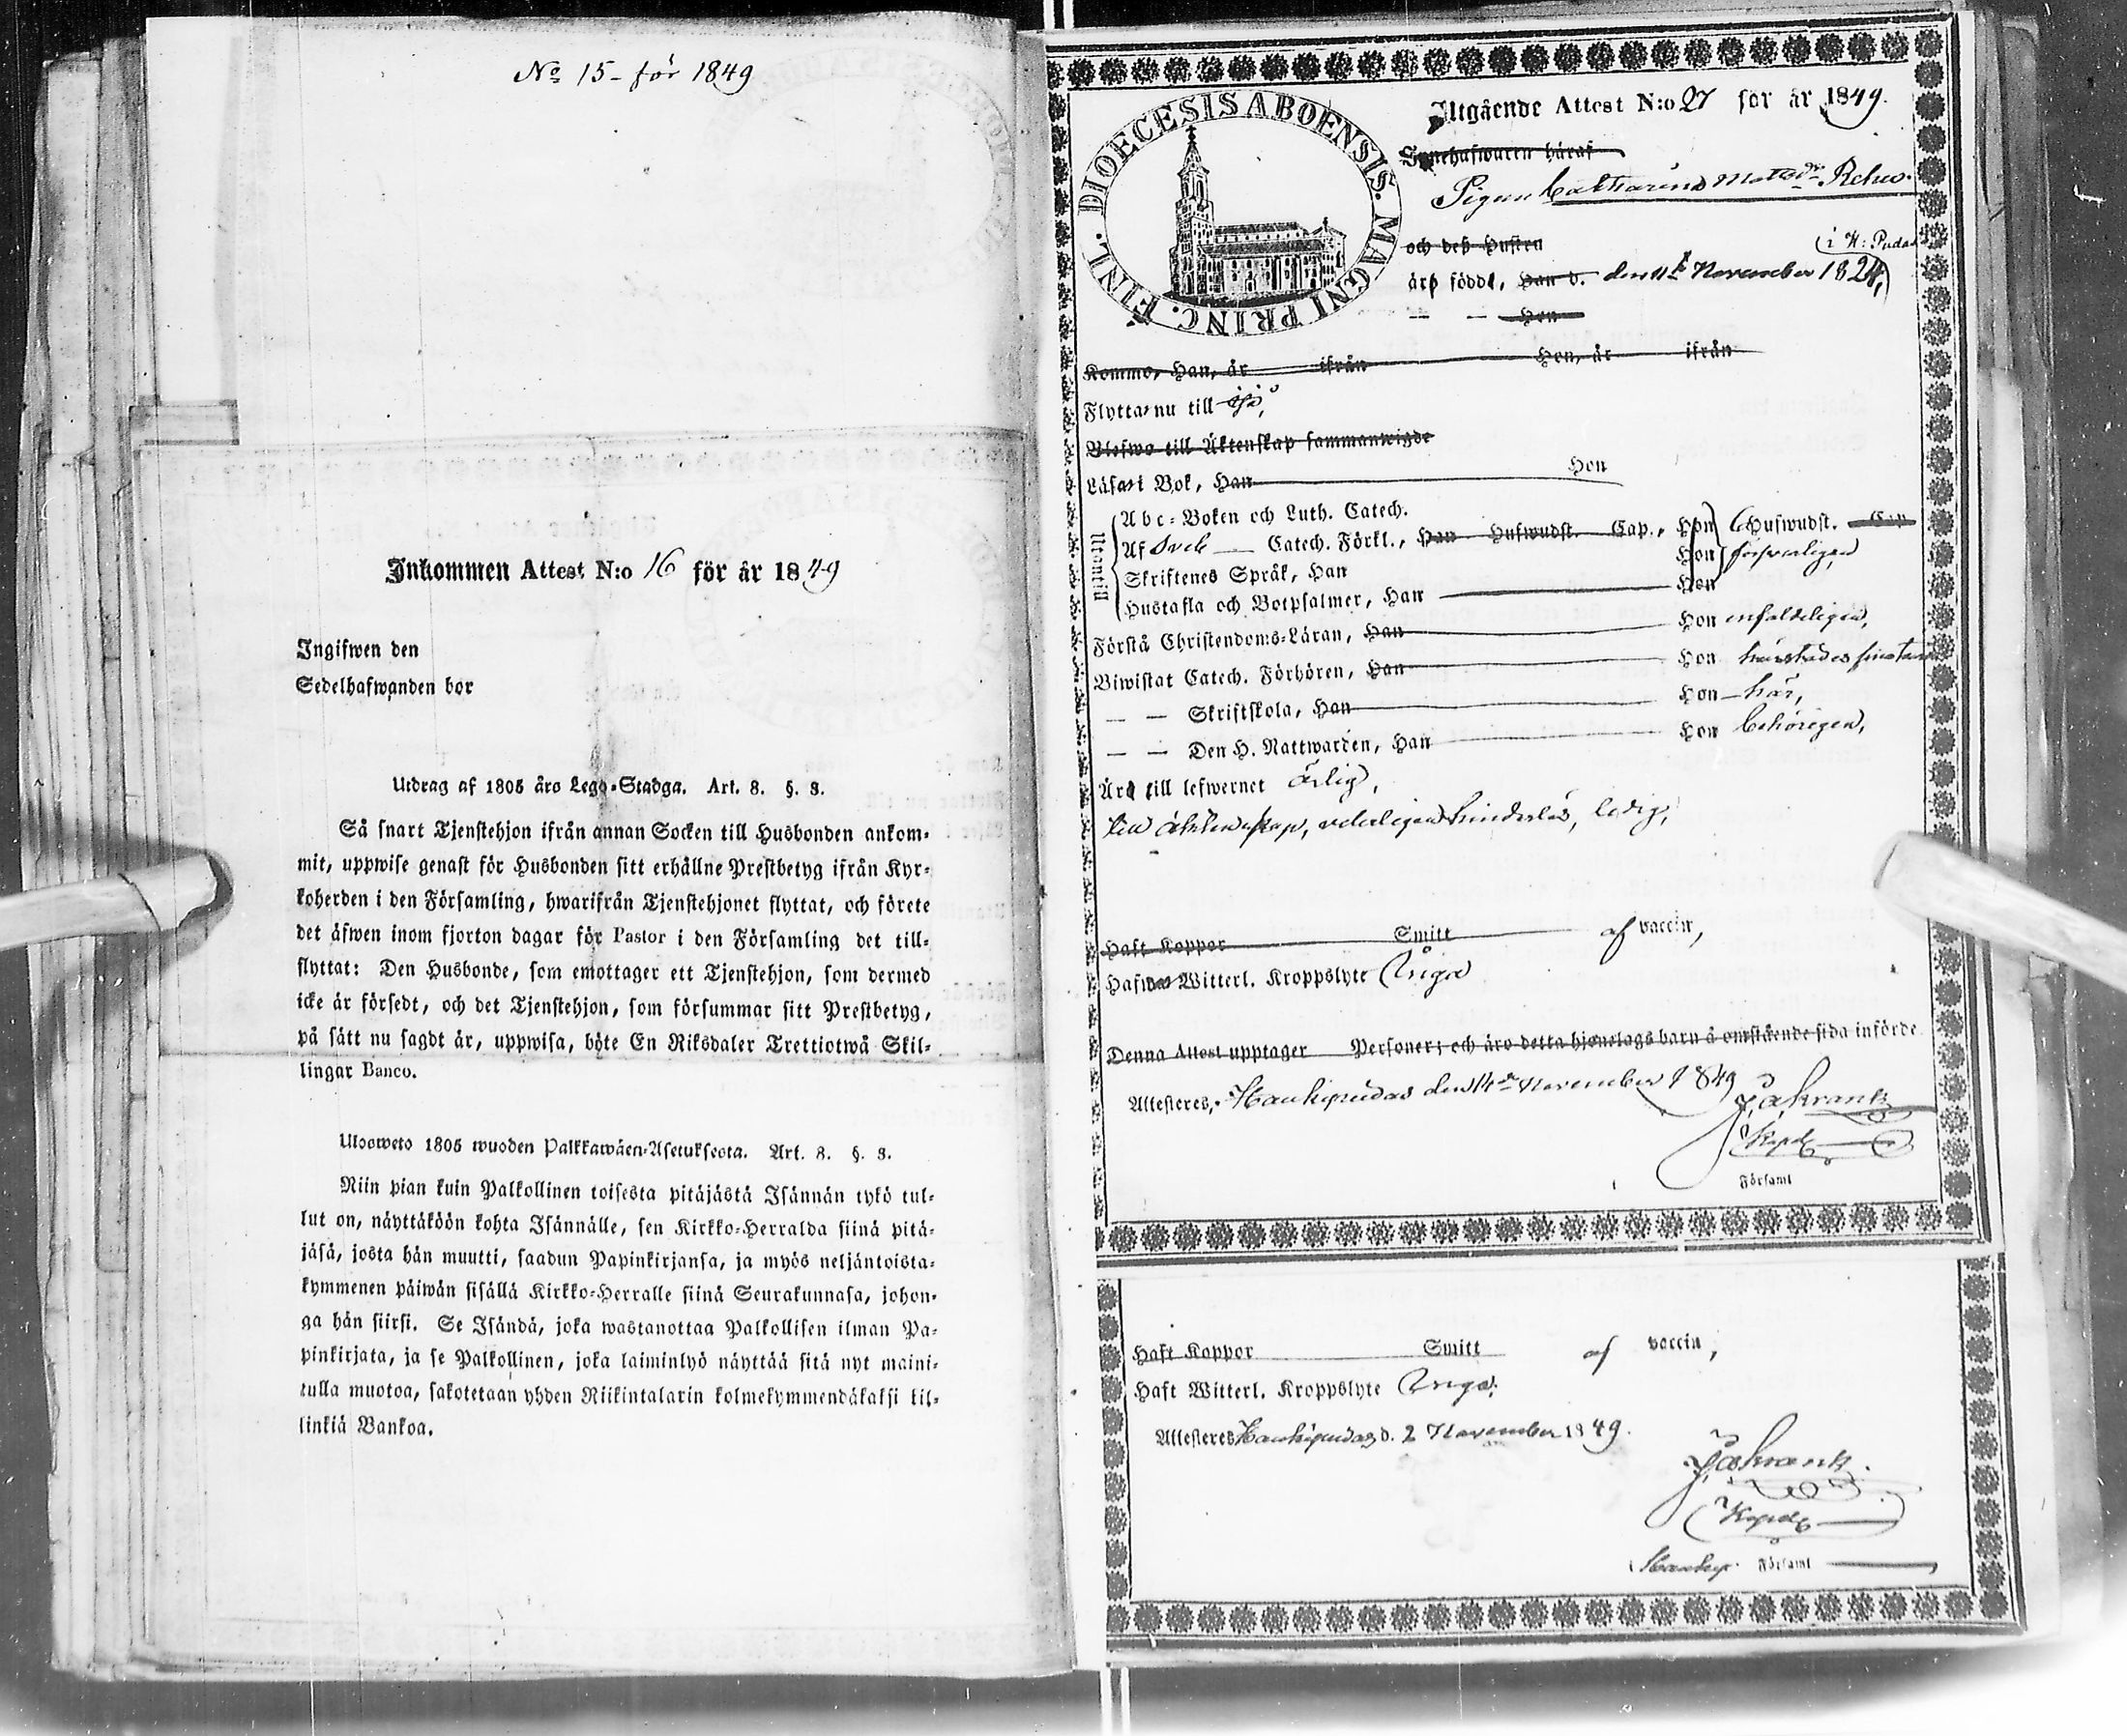 No 15 - för 1849
Inkommen Attest N:o 16 för år 1849
Ingifwen den
Sedelhafwanden bor
Utdrag af 1805 års Lego-Stadga. Art. 8. §. 8.
Så snart Tjenstehjon ifrån annan Socken till Husbonden ankom-
mit, uppwise genast för Husbonden sitt erhållne Prestbetyg ifrån Kyr-
koherden i den Församling, hwarifrån Tjenstehjonet flyttat, och förete
det äfwen inom fjorton dagar för Pastor i den Församling det till-
flyttat: Den Husbonde, som emottager ett Tjenstehjon, som dermed
icke är försedt, och det Tjenstehjon, som försummar sitt Prestbetyg,
på sätt nu sagdt är, uppwisa, böte En Riksdaler Trettiotwå Skil-
lingar Banco.
Ulosweto 1805 wuoden Palkkawäen-Asetuksesta. Art. 8. §. 8.
Niin pian kuin Palkollinen toisesta pitäjästä Isännän tykö tul-
lut on, näyttäköön kohta Isännälle, sen Kirkko-Herralda siinä pitä-
jäsä, josta hän muutti, saadun Papinkirjansa, ja myös neljäntoista-
kymmenen päiwän sisällä Kirkko-Herralle siinä Seurakunnasa, johon-
ga hän siirsi. Se Isändä, joka wastanottaa Palkollisen ilman Pa-
pinkirjata, ja se Palkollinen, joka laiminlyö näyttää sitä nyt maini-
tulla muotoa, sakotetaan yhden Riikintalarin kolmekymmendäkaksi kil-
linkiä Bankoa.
DIOECESIS ABOENSIS. MAGNI PRINC. FINL.
Utgående Attest N:o 27 för år 1849.
Innehafwaren häraf
Pigan Catharina Matsdr
och deß Hustru
(i H: Pudas
äro födde, Han d. den 11 November 1824,)
— — Hon
Kommo, Han, år ifrån Hon, år ifrån
Flytta nu till
Blefwo till Äktenskap sammanwigde
Läsa i Bok, Han Hon
Utantill
Abc-Boken och Luth. Catech.
Af Sveb Catech. Förkl., Han Hufwudst. Cap., Hon 6 Hufwudst. Cap
Skriftenes Språk, Han Hon försvarligen,
Hustafla och Botpsalmer, Han Hon
Förstå Christendoms-Läran, Han Hon enfaldeligen,
Biwistat Catech. Förhören, Han Hon härstädes sistan
— — Skriftskola, Han Hon här,
— — Den H. Nattwarden, Han Hon behörigen,
Äro till lefwernet ärlig,
till äktenskap, hinderlös, ledig,
Haft Koppor Smitt af vaccin,
Hafwa Witterl. Kroppslyte Inga
Denna Attest upptager Personer; och äro detta hjonelags barn å omstående sida införde
Attesteres, Haukipudas den 14 November 1849
J. A. Krank
Kapel
Församl
Haft Koppor Smitt af vaccin,
Haft Witterl. Kroppslyte Inga.
Attesteres Haukipudas d. 2 November 1849.
J. A. Krank
Kapel
Haukip. Församl